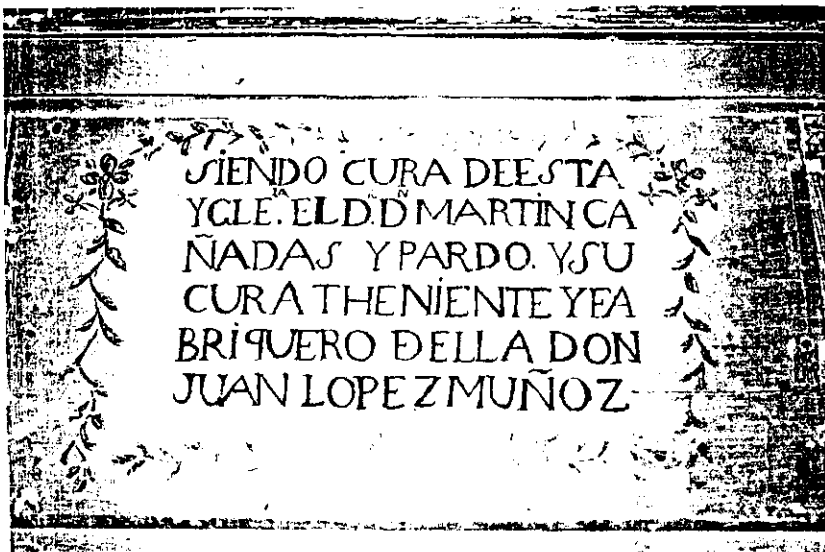 SIENDO CURA DEESTA
YGLE.ᴵᴬ EL D.Dᴺ̃ MARTIN CA
ÑADAS Y PARDO. Y SU
CURA THENIENTE Y FA
BRIQUERO DELLA DON
JUAN LOPEZ MUÑOZ